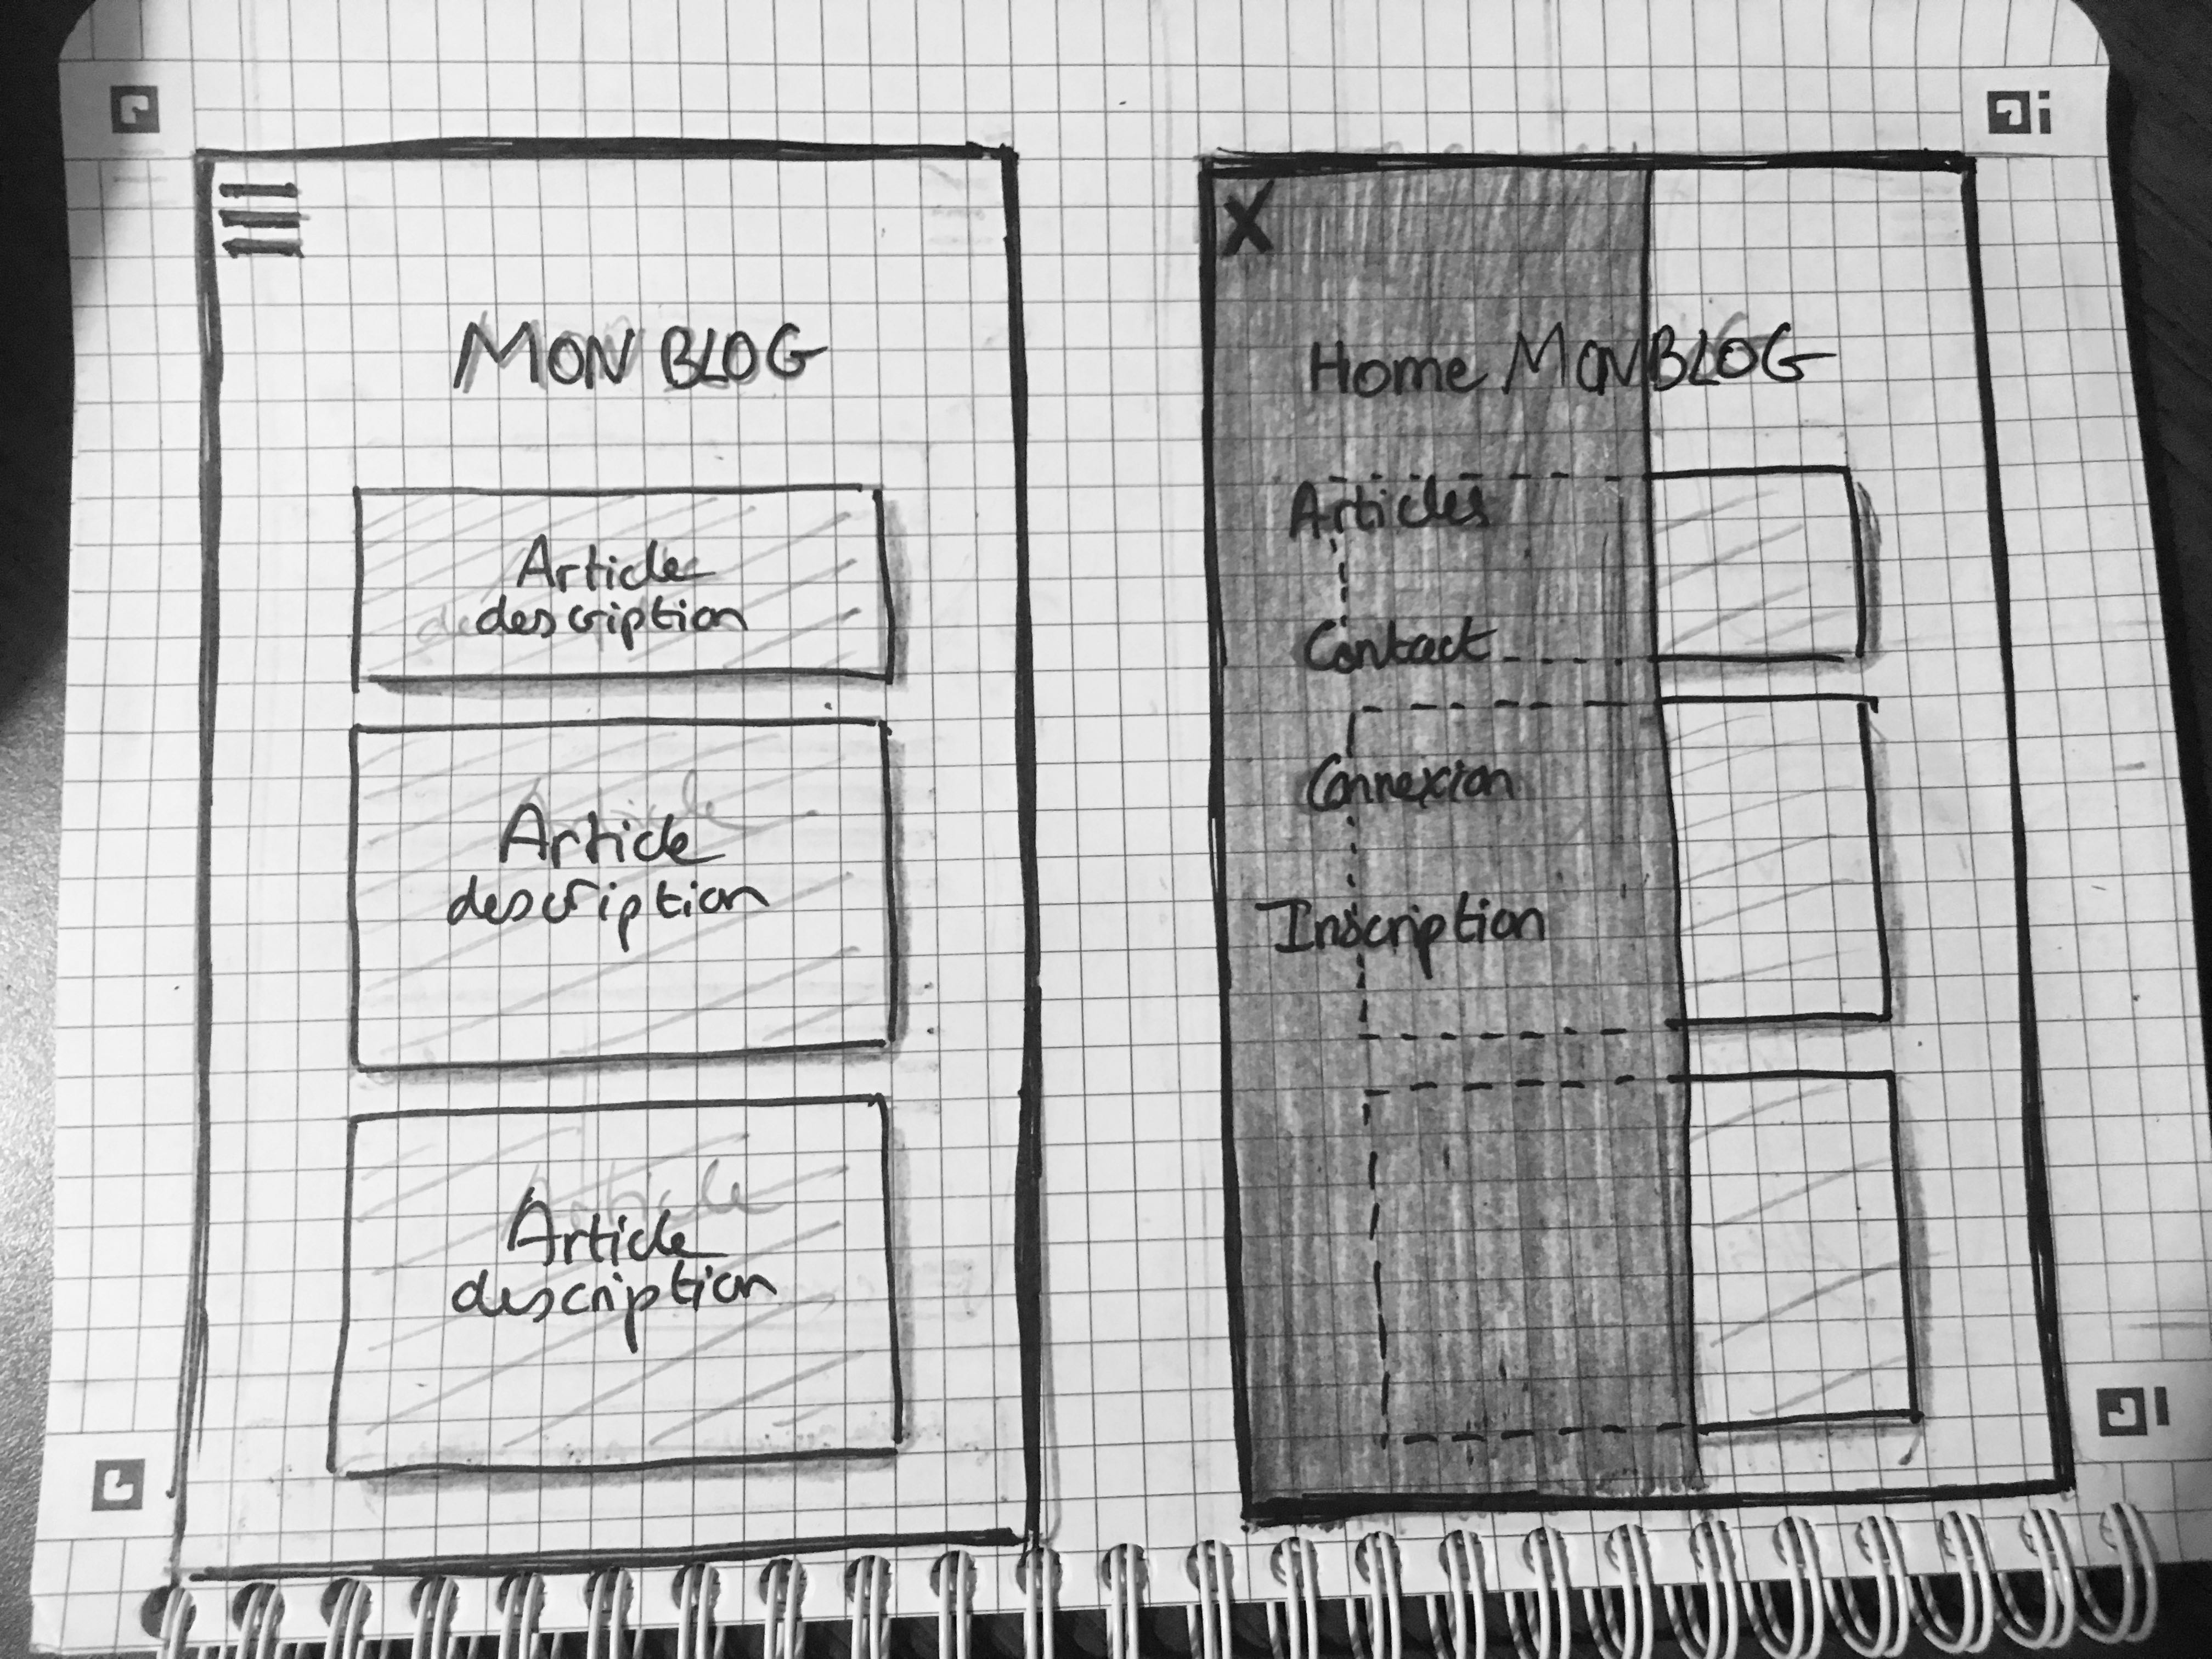 MON BLOG
Article
description
Article
description
Article
description
X
Home MON BLOG
Articles
Contact
Connexion
Inscription